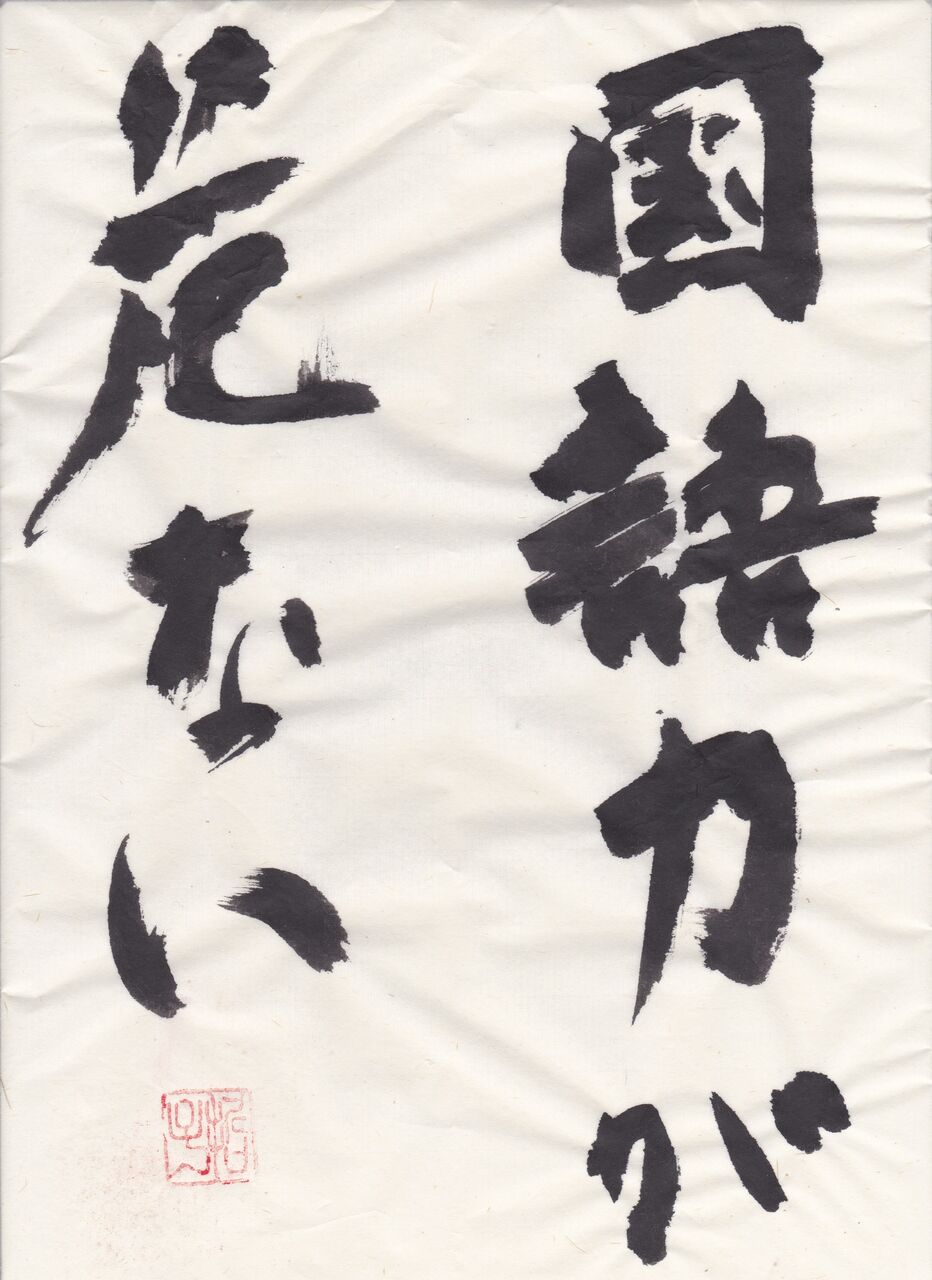 国語力が
危ない